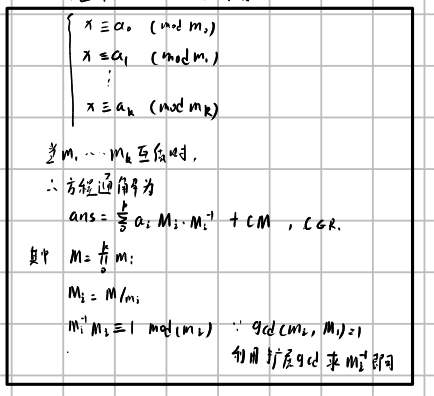 x ≡ a₀ (mod m₀)
x ≡ a₁ (mod m₁)
⋮
x ≡ aₖ (mod mₖ)
当 m₁ ⋯ mₖ 互质时,
∴ 方程通解为
ans = ∑₀ᵏ aᵢ Mᵢ · Mᵢ⁻¹ + CM , C∈R.
其中 M = ∏₀ᵏ mᵢ
Mᵢ = M/mᵢ
Mᵢ⁻¹ Mᵢ ≡ 1 mod (mᵢ) ∵ gcd(mᵢ, Mᵢ)=1
利用扩展gcd 求 Mᵢ⁻¹ 即可